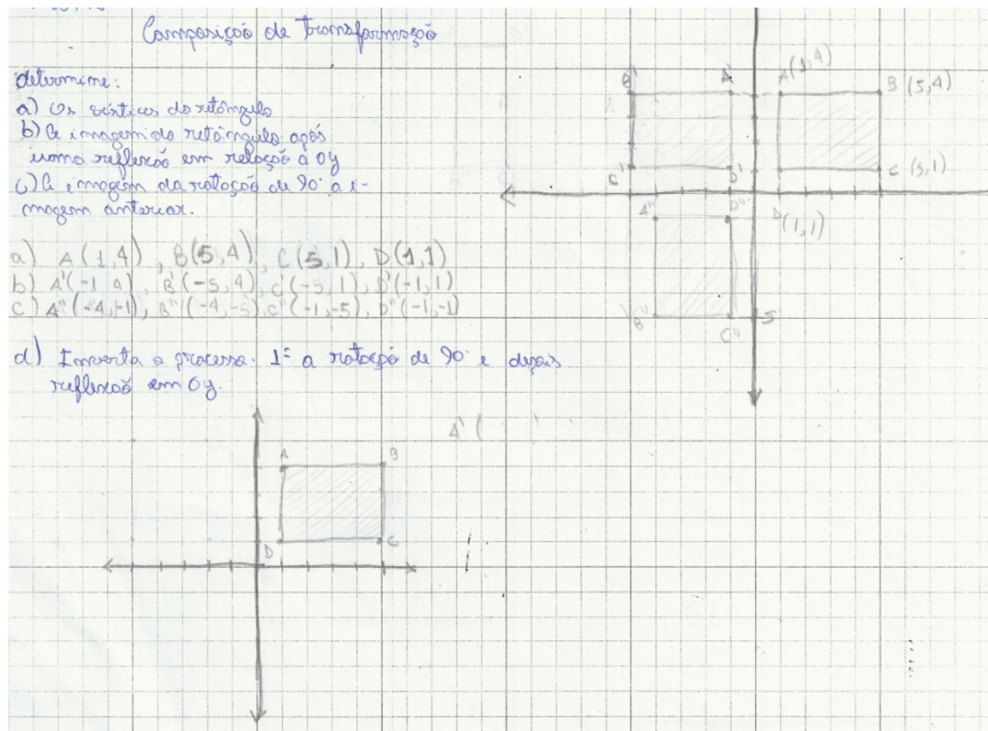 Composição de transformação
determine:
a) Os vértices do retângulo
b) A imagem do retângulo após
uma reflexão em relação a Oy
c) A imagem da rotação de 90° a i-
magem anterior.
a) A(1,4), B(5,4), C(5,1), D(1,1)
b) A'(-1,4), B'(-5,4), C'(-5,1), D'(-1,1)
c) A''(-4,-1), B''(-4,-5), C''(-1,-5), D''(-1,-1)
d) Inverta o processo. 1º a rotação de 90° e depois
reflexão em Oy.
B' A' A(1,4) B(5,4)
C' D' C(5,1)
A'' D'' D(1,1)
B'' C'' -5
A'(
A B
D C